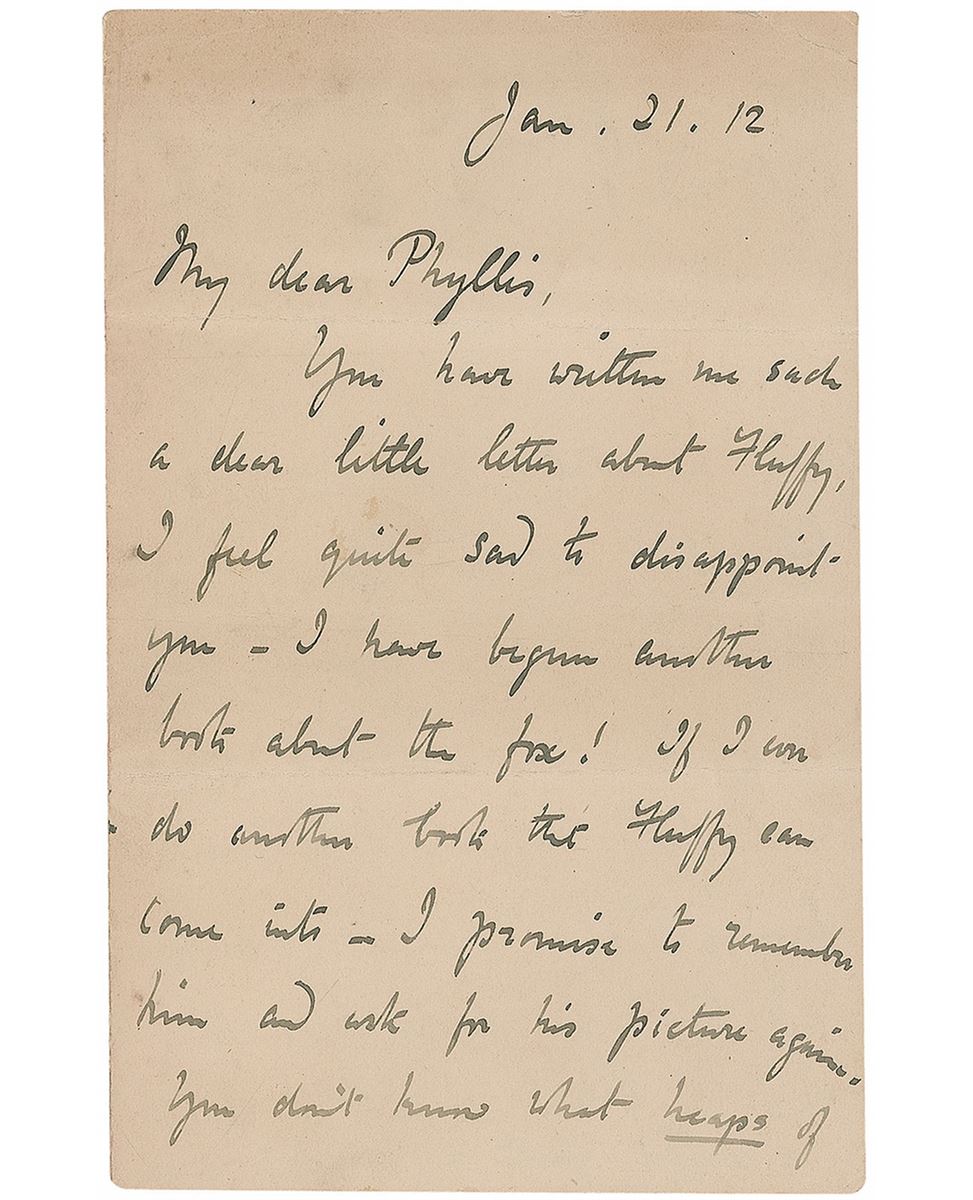 Jan. 21. 12
My dear Phyllis,
You have written me such
a dear little letter about Fluffy,
I feel quite sad to disappoint
you – I have begun another
book about the fox! If I ever
do another book that Fluffy can
come into – I promise to remember
him and ask for his picture again.
You don't know what heaps of